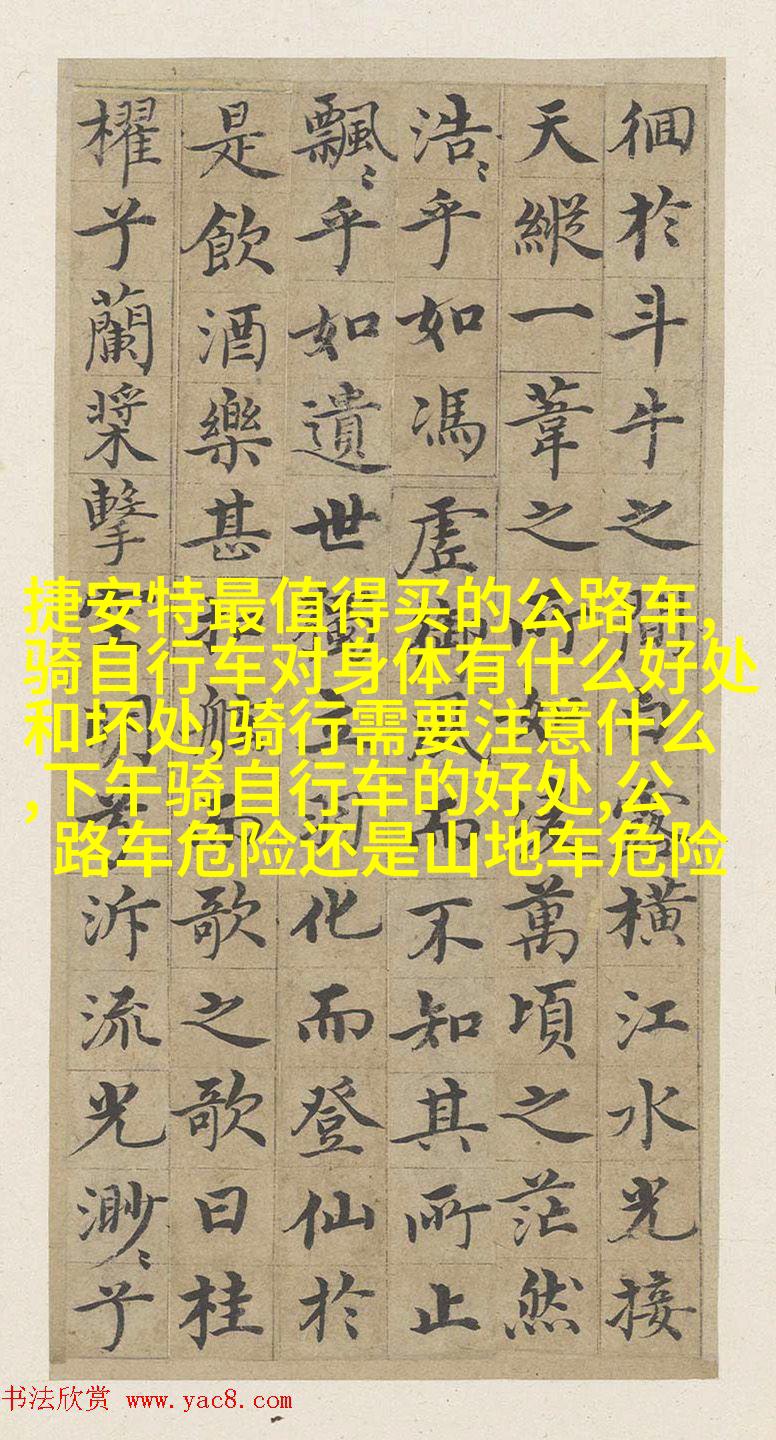 徊於斗牛之間白露橫江水光接
天縱一葦之所如凌萬頃之茫然
浩〻乎如馮虛御風而不知其所止
飄〻乎如遺世獨立羽化而登仙於
是飲酒樂甚扣舷而歌之歌曰桂
櫂兮蘭槳擊空明兮泝流光渺〻兮
捷安特最值得买的公路车,
骑自行车对身体有什么好处
和坏处,骑行需要注意什么
,下午骑自行车的好处,公
路车危险还是山地车危险
书法欣赏 www.yac8.com